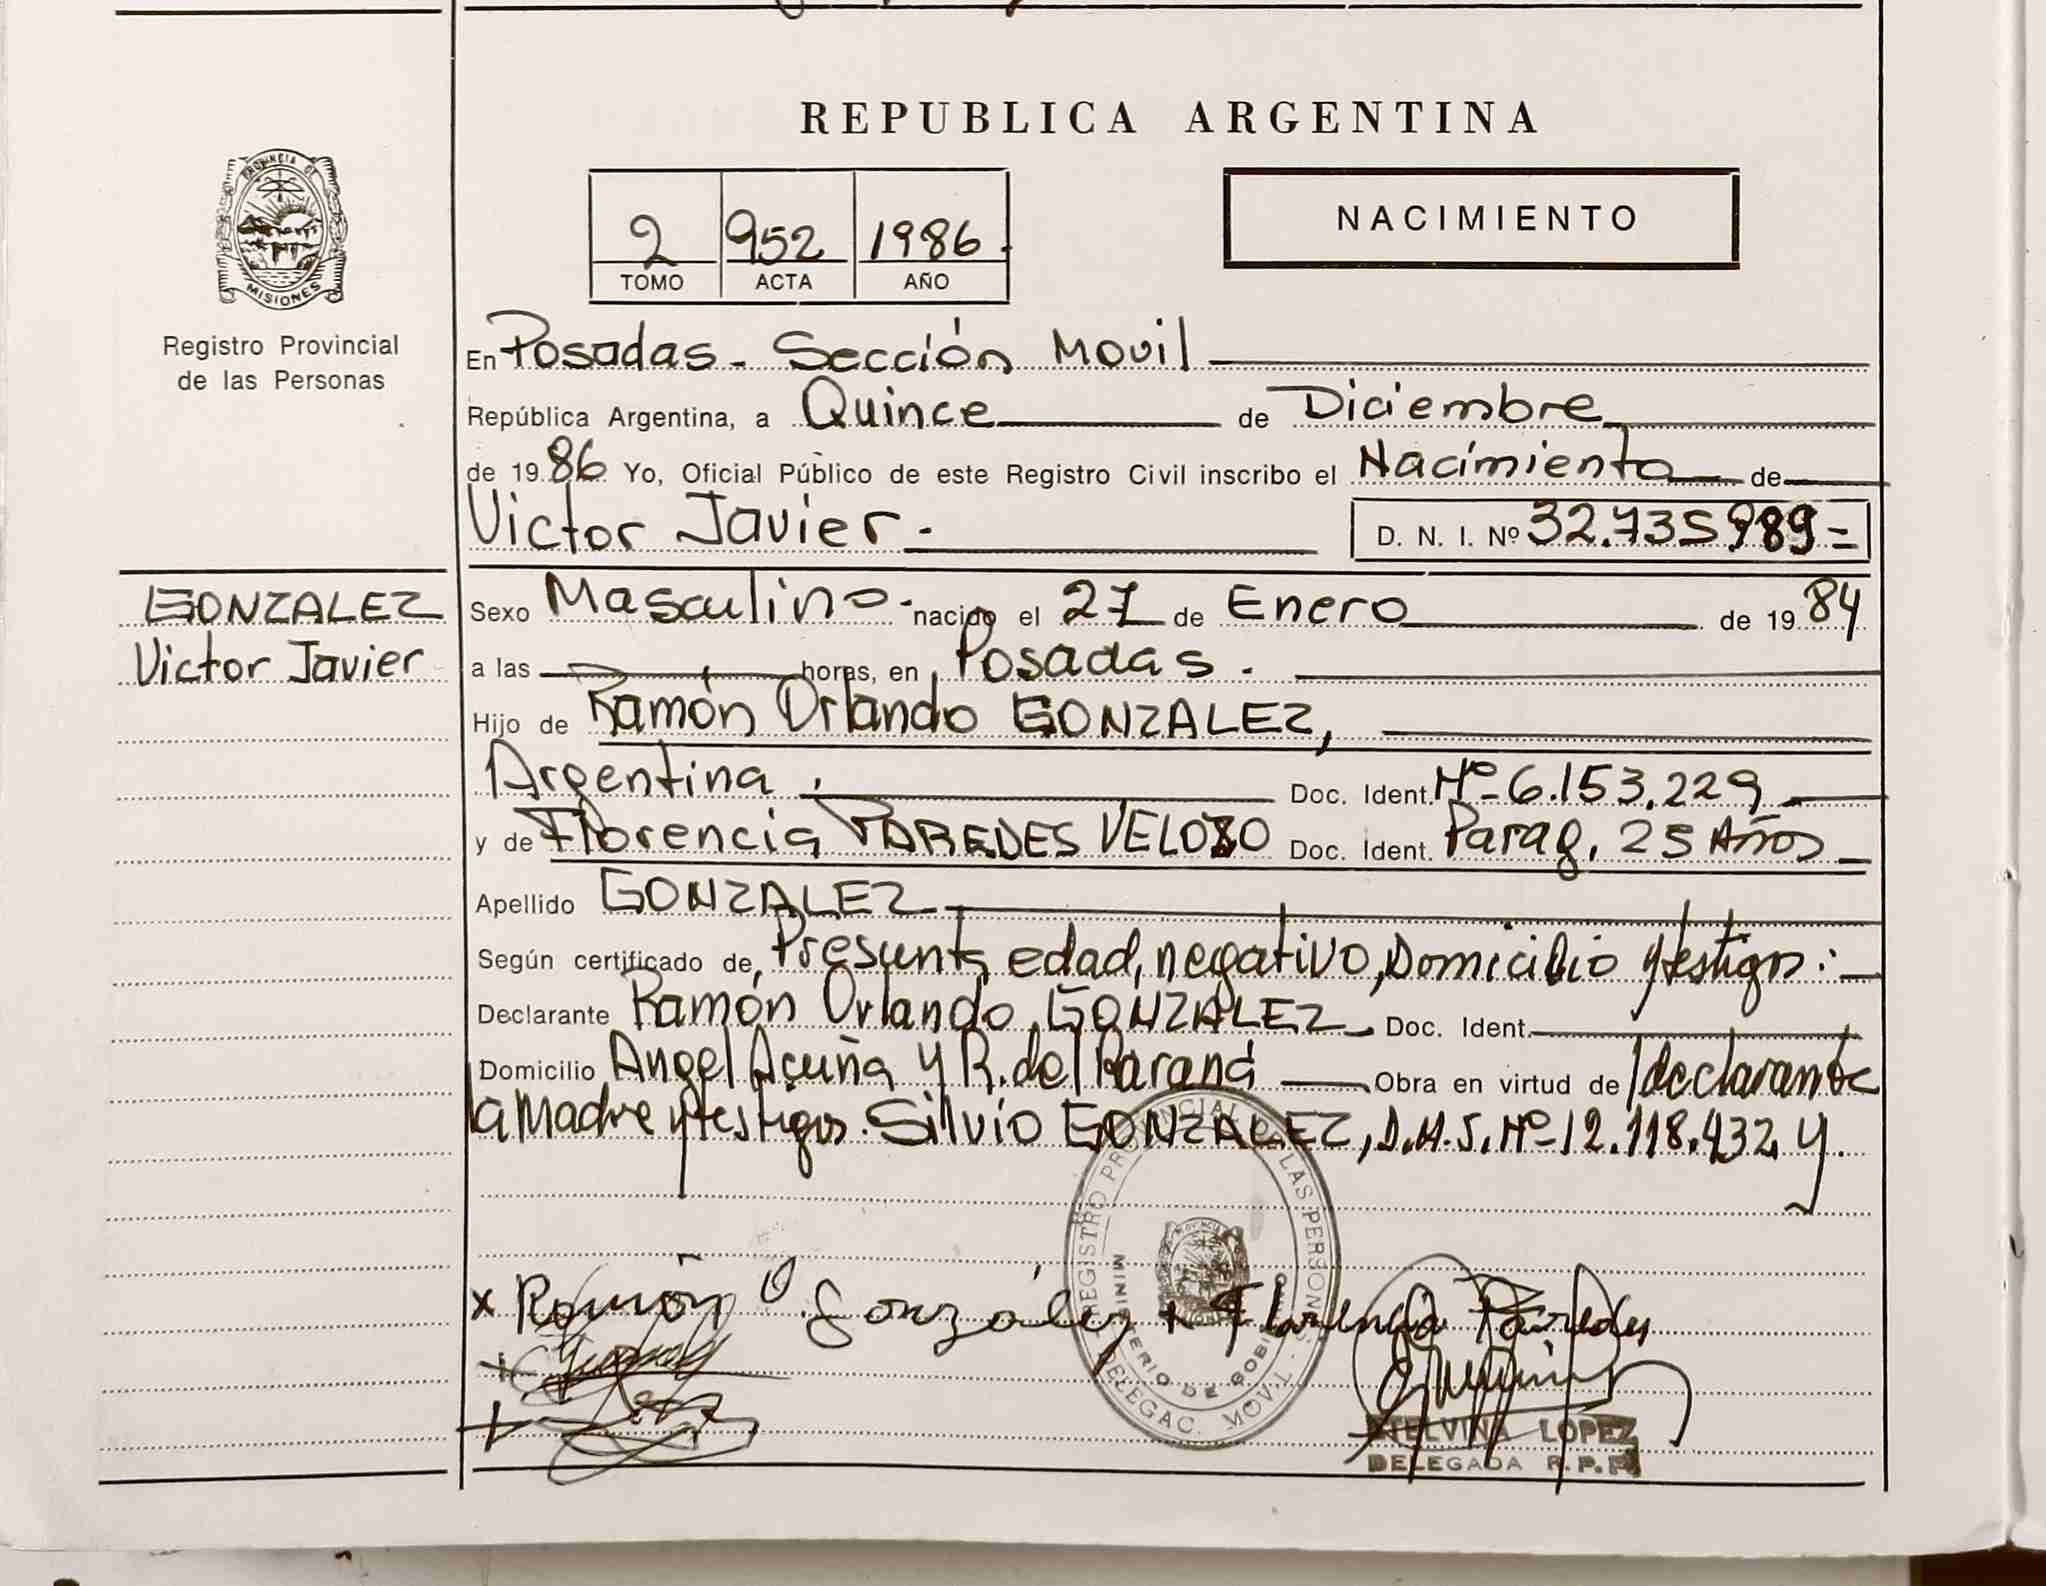 REPUBLICA ARGENTINA
PROVINCIA DE
MISIONES
Registro Provincial
de las Personas
2 952 1986
TOMO ACTA AÑO
NACIMIENTO
En Posadas - Sección Movil
República Argentina, a Quince de Diciembre
de 1986 Yo, Oficial Público de este Registro Civil inscribo el Nacimiento de
Victor Javier.- D. N. I. Nº 32.735.989=
GONZALEZ
Victor Javier
Sexo Masculino.- nacido el 27 de Enero de 1984
a las horas, en Posadas.
Hijo de Ramón Orlando GONZALEZ,
Argentina. Doc. Ident. Nº 6.153.229
y de Florencia PAREDES VELOZO Doc. Ident. Parag. 25 Años
Apellido GONZALEZ
Según certificado de Presunta edad, negativo, Domicilio y testigos:
Declarante Ramón Orlando GONZALEZ Doc. Ident.
Domicilio Angel Acuña y R. del Paraná Obra en virtud de /declarante
la Madre y testigos. Silvio GONZALEZ, D.N.I. Nº 12.118.432 y
REGISTRO PROVINCIAL DE LAS PERSONAS
MINISTERIO DE GOBI
DELEGAC. MOVIL
x Ramón O. González x Florencia Paredes
ETELVINA LOPEZ
DELEGADA R.P.P.